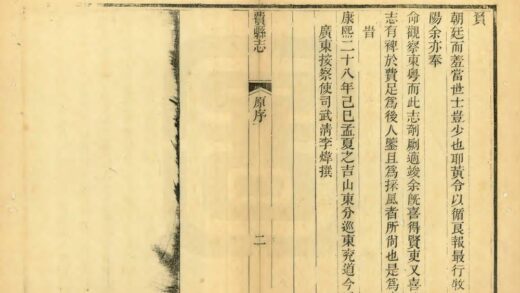 負
朝廷而羞當世士豈少也耶黃令以循良報最行牧
陽余亦奉
命觀察東粤而此志剞劂適竣余旣喜得賢吏又喜
志有裨於費足爲後人鑒且爲採風者所尙也是爲
旹
康熙二十八年己巳孟夏之吉山東分巡東兗道今
廣東按察使司武淸李煒撰
費縣志
原序
二